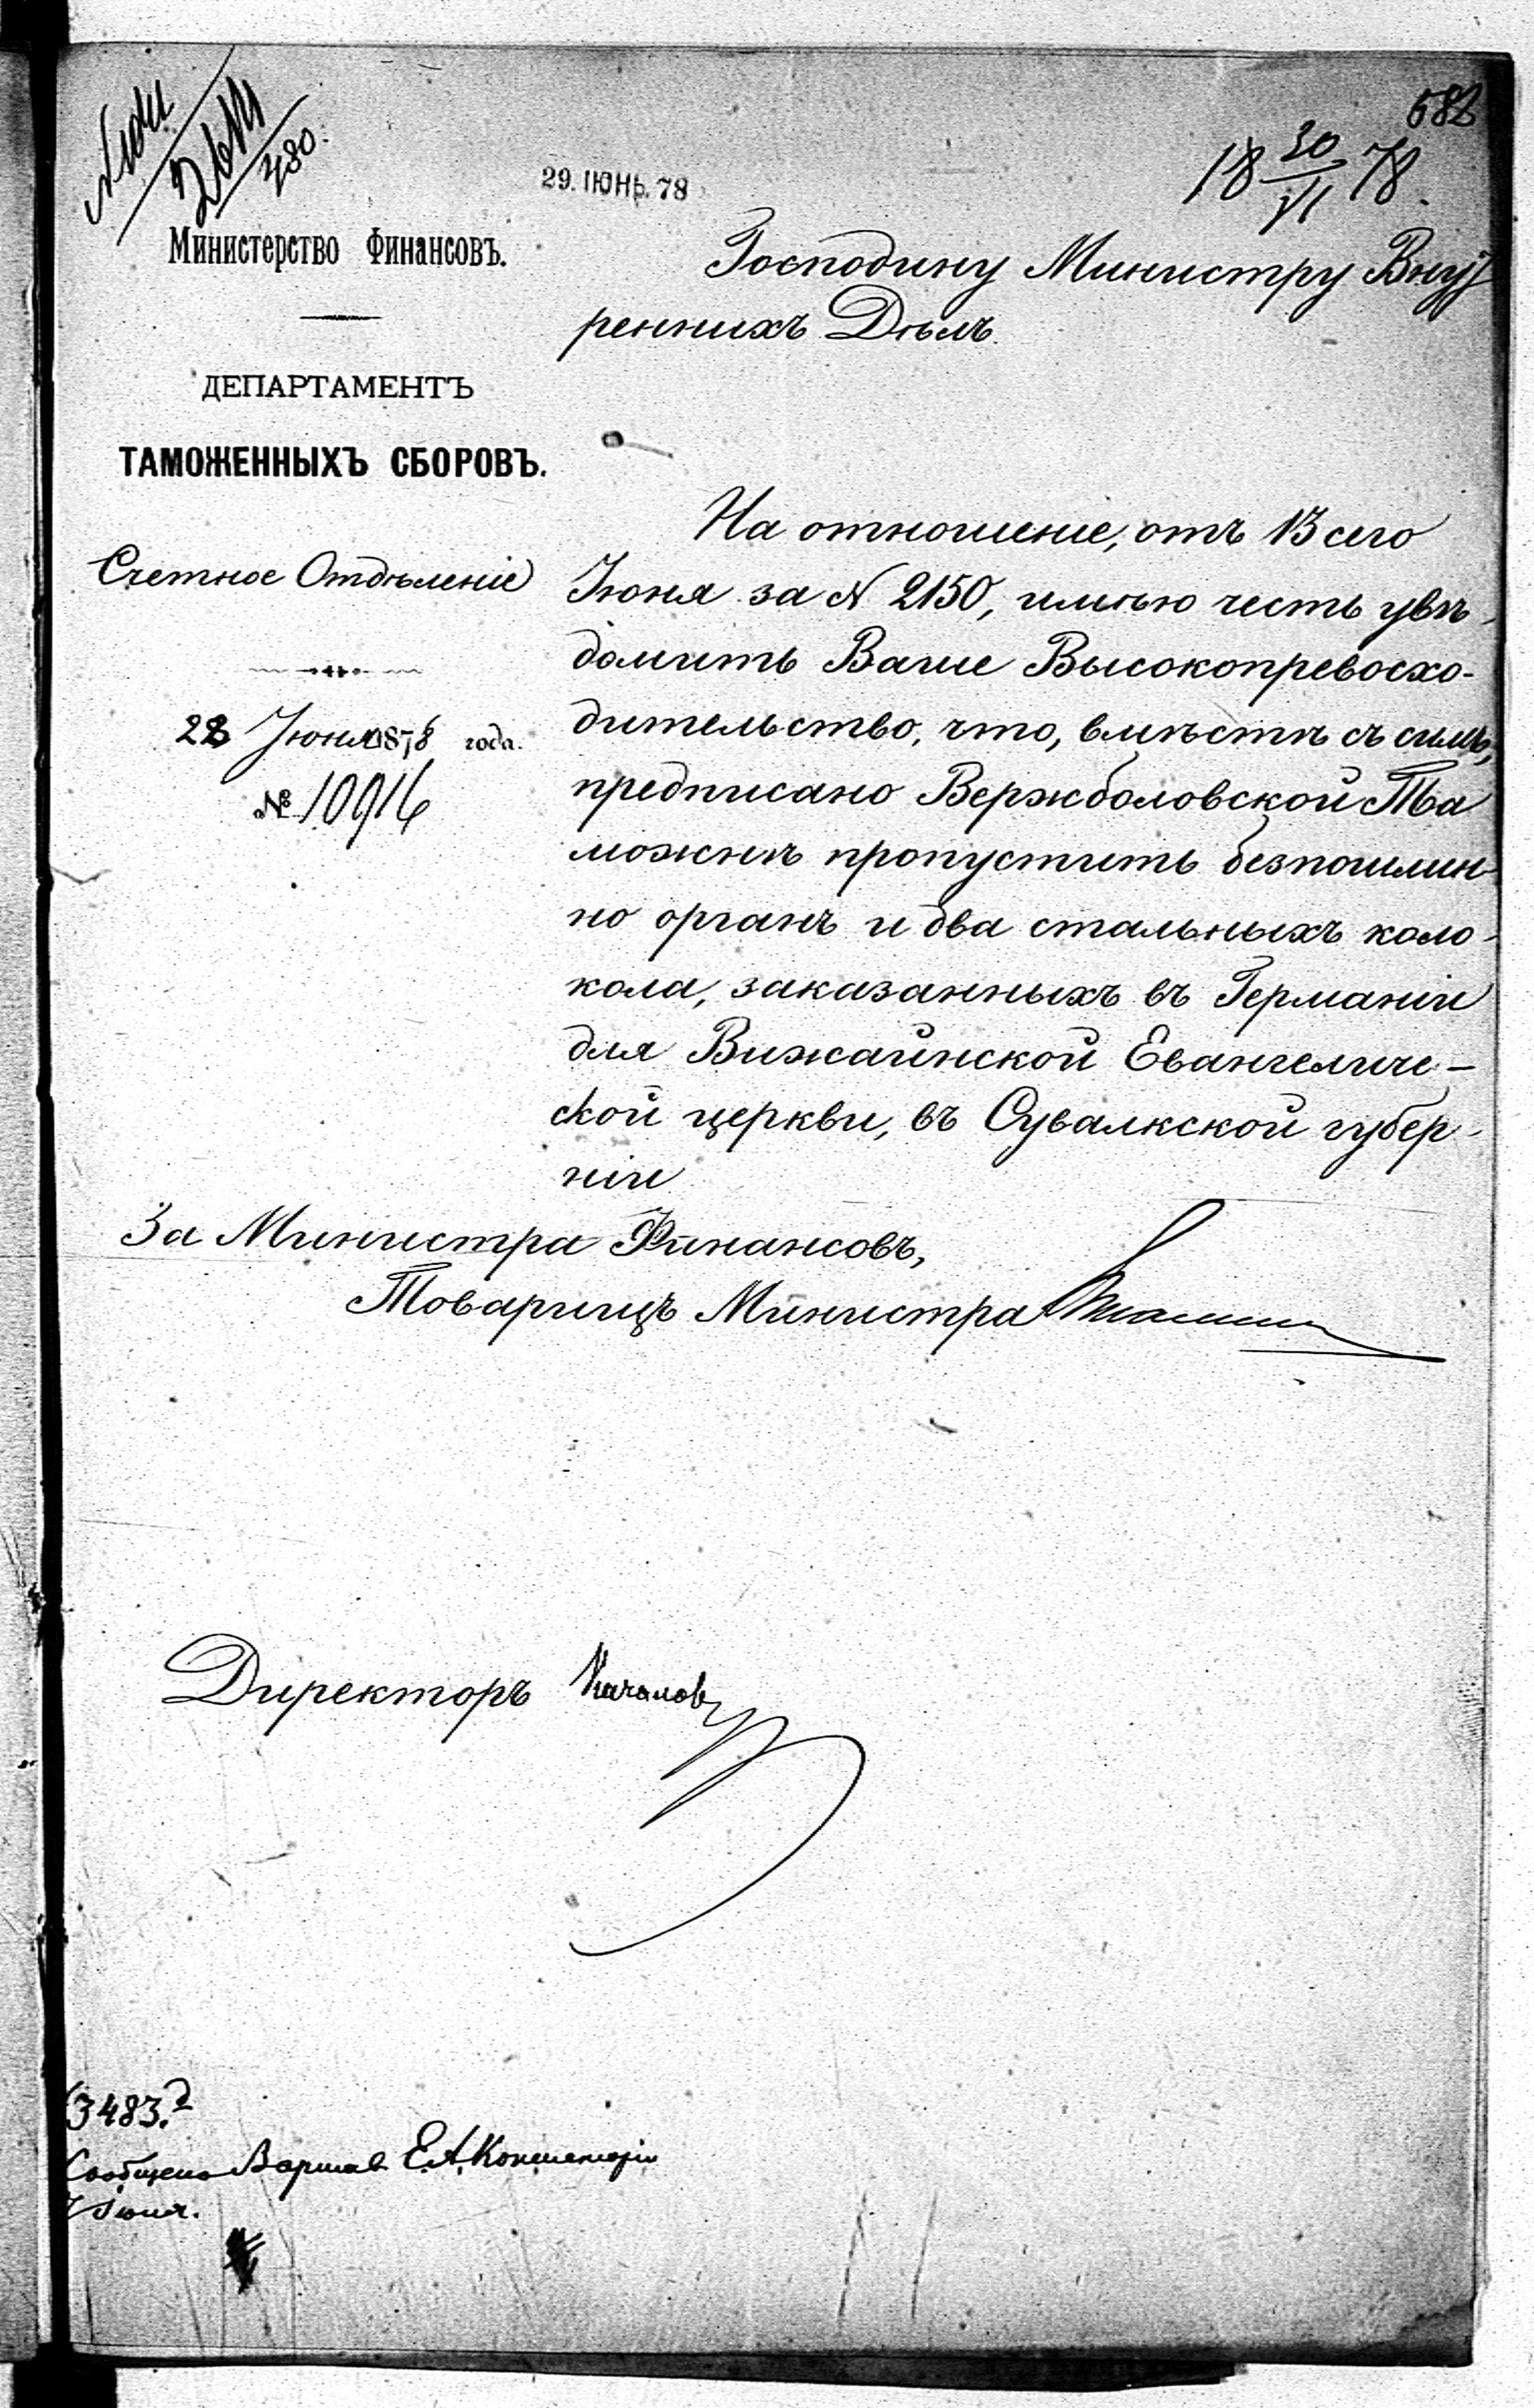 682
29. ІЮНЬ. 78
18 30/VI 78.
Министерство Финансовъ.
ДЕПАРТАМЕНТЪ
ТАМОЖЕННЫХЪ СБОРОВЪ.
Счетное Отдѣленіе
28 Іюня 1878 года.
№ 10916
Господину Министру Внут
реннихъ Дѣлъ.
На отношеніе, отъ 13 сего
Іюня за № 2150, имѣю честь увѣ-
домить Ваше Высокопревосхо-
дительство, что, вмѣстѣ съ симъ,
предписано Вержболовской Та
можнѣ пропустить безпошлин-
но органъ и два стальныхъ коло-
кола, заказанныхъ въ Германіи
для Вижайнской Евангеличе-
ской церкви, въ Сувалкской губер-
ніи
За Министра Финансовъ,
Товарищъ Министра
Директоръ Качаловъ
3483.
Сообщено Варшав. Е. А. Консисторіи